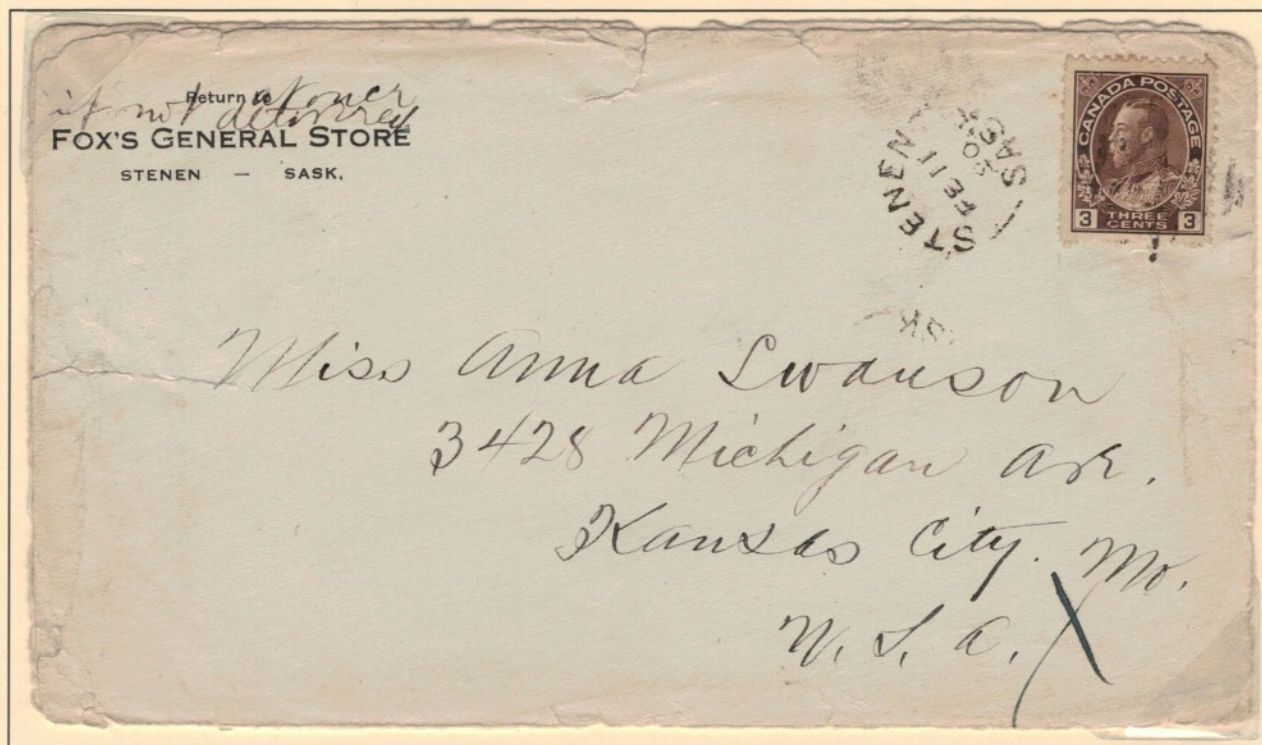 Return to
if not delivered
FOX'S GENERAL STORE
STENEN — SASK.
STENEN SASK
FE 11
20
SK
CANADA POSTAGE
3 THREE CENTS 3
Miss Anna Swanson
3428 Michigan Ave.
Kansas City. Mo.
U. S. A.